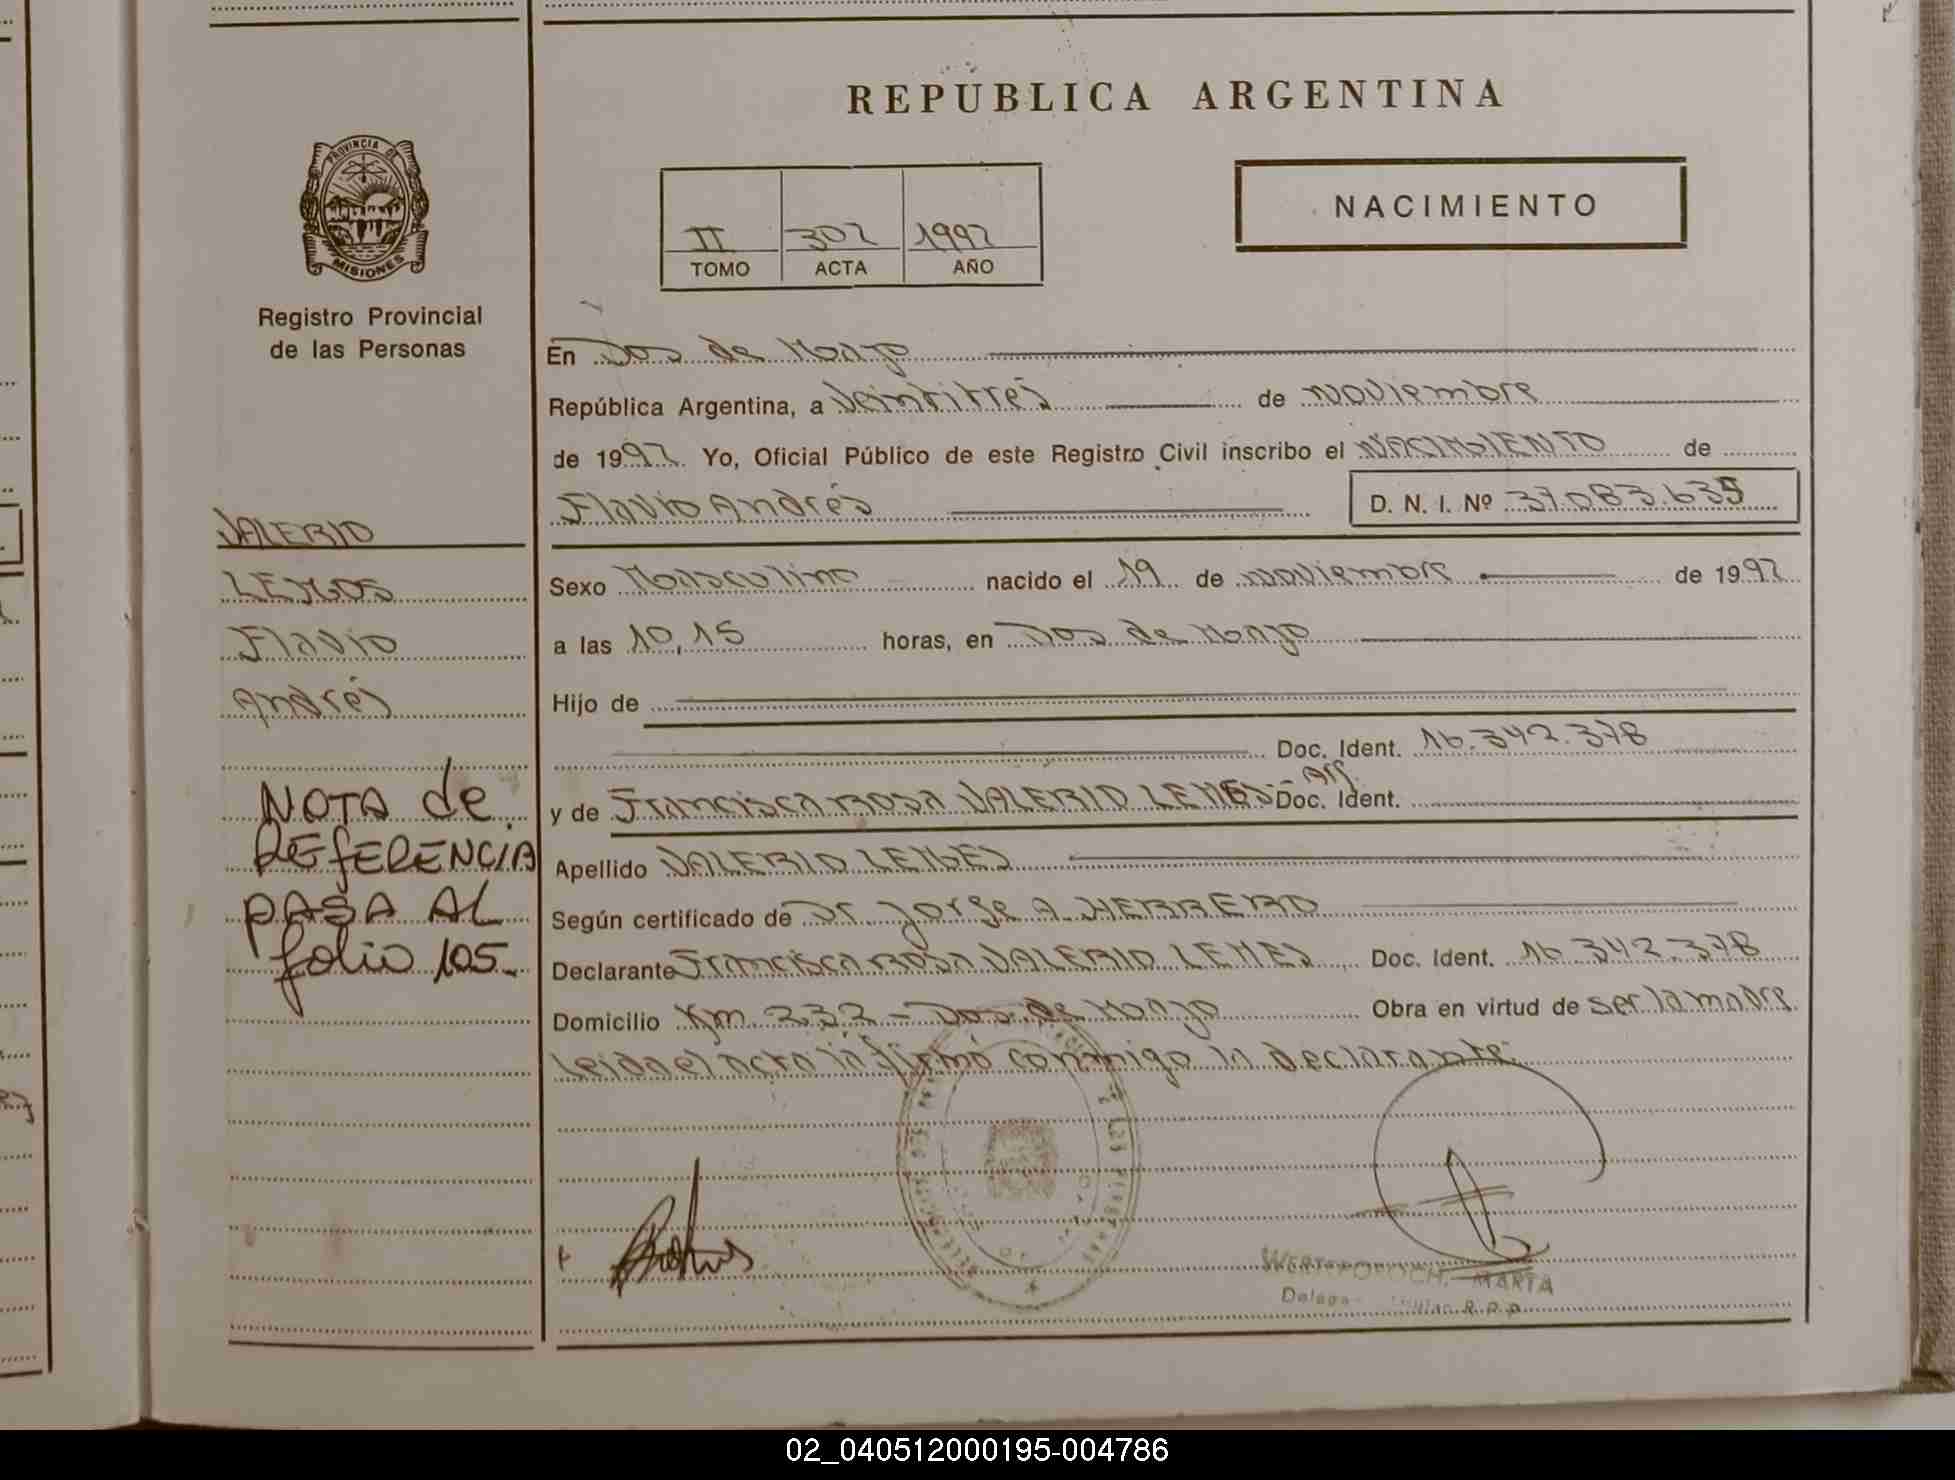 REPUBLICA ARGENTINA
PROVINCIA DE
MISIONES
Registro Provincial
de las Personas
II 302 1992
TOMO ACTA AÑO
NACIMIENTO
En Dos de Mayo
República Argentina, a Veintitrés de noviembre
de 1992. Yo, Oficial Público de este Registro Civil inscribo el NACIMIENTO de
Flavio Andrés D. N. I. Nº 37.083.635
VALERIO
LEMOS
Flavio
Andrés
Sexo Masculino nacido el 19 de noviembre de 1992
a las 10,15 horas, en Dos de Mayo
Hijo de
Doc. Ident. 16.342.378
y de Francisca Rosa VALERIO LEMES - Arg. Doc. Ident.
Apellido VALERIO LEMES
Según certificado de Dr. Jorge A. HERRERO
Declarante Francisca Rosa VALERIO LEMES Doc. Ident. 16.342.378
Domicilio Km. 232 - Dos de Mayo Obra en virtud de ser la madre.
Leida el acta la firmó conmigo la declarante.
NOTA de
REfERENCIA
PASA AL
folio 105.
MARTA
R.P.P.
02_040512000195-004786